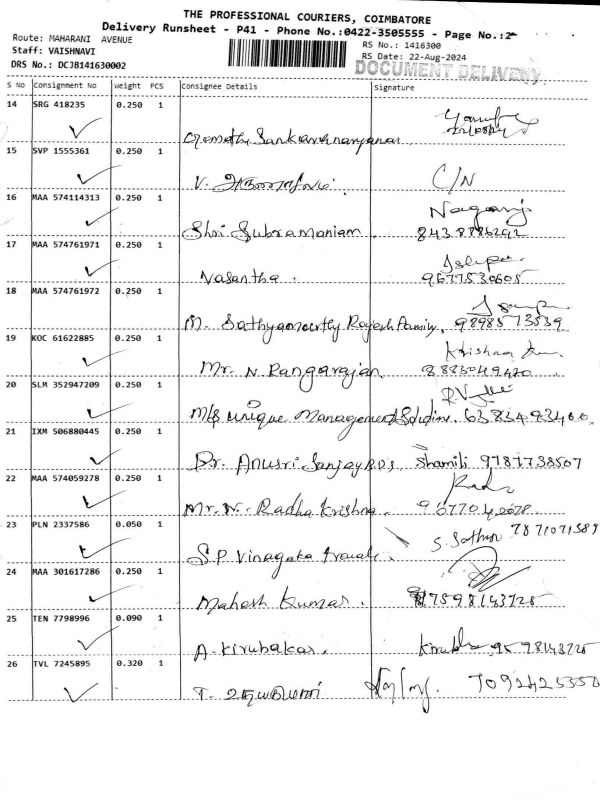 THE PROFESSIONAL COURIERS, COIMBATORE
Delivery Runsheet - P41 - Phone No.:0422-3505555 - Page No.:2
Route: MAHARANI AVENUE
RS No.: 1416300
Staff: VAISHNAVI
RS Date: 22-Aug-2024
DRS No.: DCJB141630002
DOCUMENT DELIVERY
S No Consignment No Weight PCS Consignee Details Signature
14 SRG 418235 0.250 1
Sankaranarayanan
15 SVP 1555361 0.250 1
V. C/N
16 MAA 574114313 0.250 1
Nagaraj
Shri Subramaniam. 8438786292
17 MAA 574761971 0.250 1
Vasantha. 9677530605
18 MAA 574761972 0.250 1
M. Sathyamourthy Rajesh Family. 9898573539
19 KOC 61622885 0.250 1
Krishna
Mr. N. Rangarajan 8883049420
20 SLM 352947209 0.250 1
M/s unique Management
21 IXM 506880445 0.250 1
Dr. Anusri Sanjay B.D.S Shamili 9787738507
22 MAA 574059278 0.250 1
Mr. N. Radha Krishna.
23 PLN 2337586 0.050 1
S. 7871071389
S.P Vinayaka travals.
24 MAA 301617286 0.250 1
Mahesh Kumar. 7598143725
25 TEN 7798996 0.090 1
A. Kirubakar. 9598143725
26 TVL 7245895 0.320 1
T. 7092425550